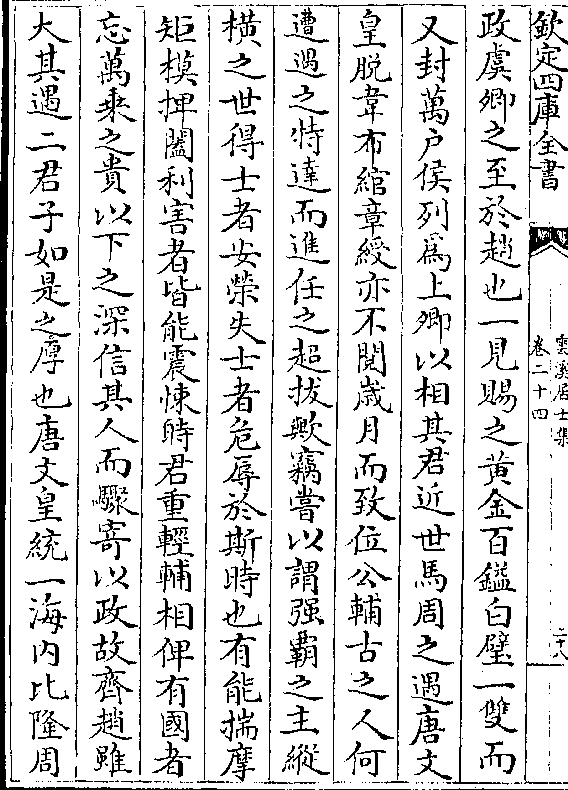 欽定四庫全書
雲溪居士集
卷二十四
二十八
政虞卿之至於趙也一見賜之黃金百鎰白璧一雙而
又封萬户侯列爲上卿以相其君近世馬周之遇唐文
皇脱韋布綰章綬亦不閱歲月而致位公輔古之人何
遭遇之特達而進任之超拔歟竊嘗以謂强霸之主縱
橫之世得士者安榮失士者危辱於斯時也有能揣摩
矩模捭闔利害者皆能震悚時君重輕輔相俾有國者
忘萬乘之貴以下之深信其人而驟寄以政故齊趙雖
大其遇二君子如是之厚也唐文皇統一海内比隆周